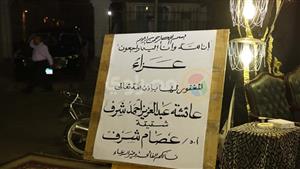 بسم الله الرحمن الرحيم
إنا لله وإنا إليه راجعون
عزاء
المغفور لها بإذن الله تعالى
عائشة عبدالعزيز أحمد شرف
شقيقة
أ.د/ عصام شرف